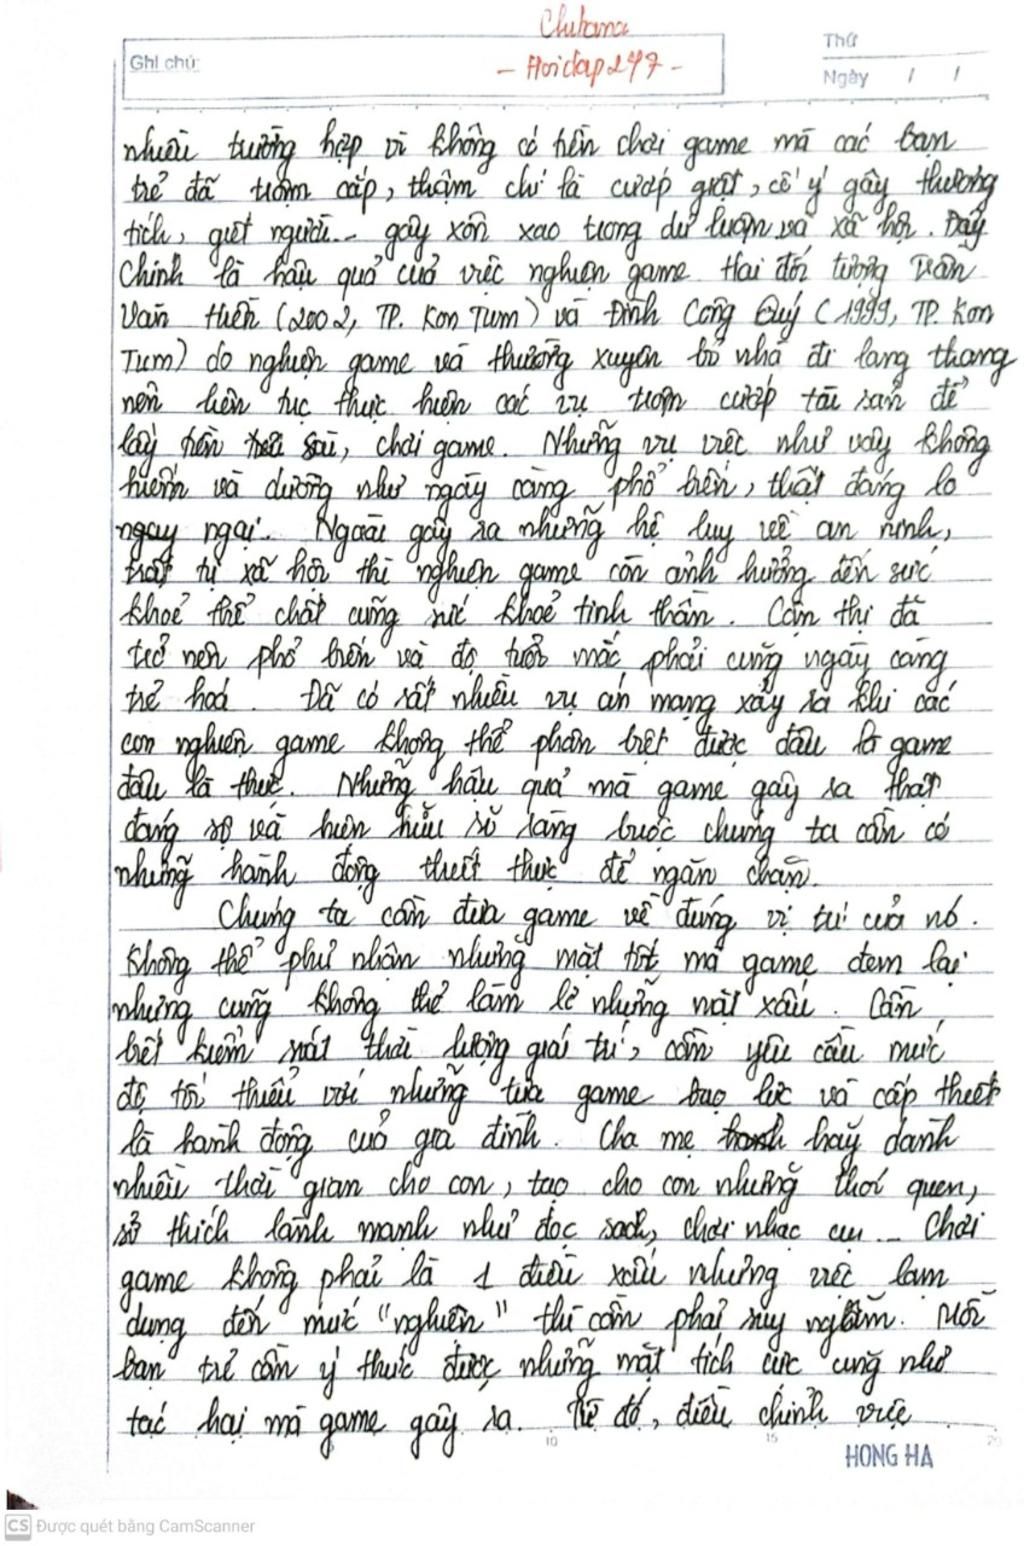 Ghi chú:
Chitana
- Hoidap247 -
Thứ
Ngày / /
nhiều trường hợp vì không có tiền chơi game mà các bạn
trẻ đã trộm cắp, thậm chí là cướp giật, cố ý gây thương
tích, giết người... gây xôn xao trong dư luận và xã hội. Đây
chính là hậu quả của việc nghiện game. Hai đối tượng Trần
Văn Hiền (2002, TP. Kon Tum) và Đinh Công Quý (1999, TP. Kon
Tum) do nghiện game và thường xuyên bỏ nhà đi lang thang
nên liên tục thực hiện các vụ trộm cướp tài sản để
lấy tiền tiêu sài, chơi game. Những vụ việc như vậy không
hiếm và dường như ngày càng phổ biến, thật đáng lo
ngay ngại. Ngoài gây ra những hệ luỵ về an ninh,
trật tự xã hội thì nghiện game còn ảnh hưởng đến sức
khoẻ thể chất cũng sức khoẻ tinh thần. Cận thị đã
trở nên phổ biến và độ tuổi mắc phải cũng ngày càng
trẻ hoá. Đã có rất nhiều vụ án mạng xảy ra khi các
con nghiện game không thể phân biệt được đâu là game
đâu là thực. Những hậu quả mà game gây ra thật
đáng sợ và hiện hữu rõ ràng buộc chúng ta cần có
những hành động thiết thực để ngăn chặn.
Chúng ta cần đưa game về đúng vị trí của nó.
Không thể phủ nhận những mặt tốt mà game đem lại
nhưng cũng không thể làm lơ những mặt xấu. Cần
biết kiểm soát thời lượng giải trí, cần yêu cầu mức
độ tối thiểu với những tựa game bạo lực và cấp thiết
là hành động của gia đình. Cha mẹ hãy dành
nhiều thời gian cho con, tạo cho con những thói quen,
sở thích lành mạnh như đọc sách, chơi nhạc cụ... Chơi
game không phải là 1 điều xấu nhưng việc lạm
dụng đến mức "nghiện" thì cần phải suy ngẫm. Mỗi
bạn trẻ cần ý thức được những mặt tích cực cũng như
tác hại mà game gây ra. Từ đó, điều chỉnh việc
10
15
20
HONG HA
CS Được quét bằng CamScanner